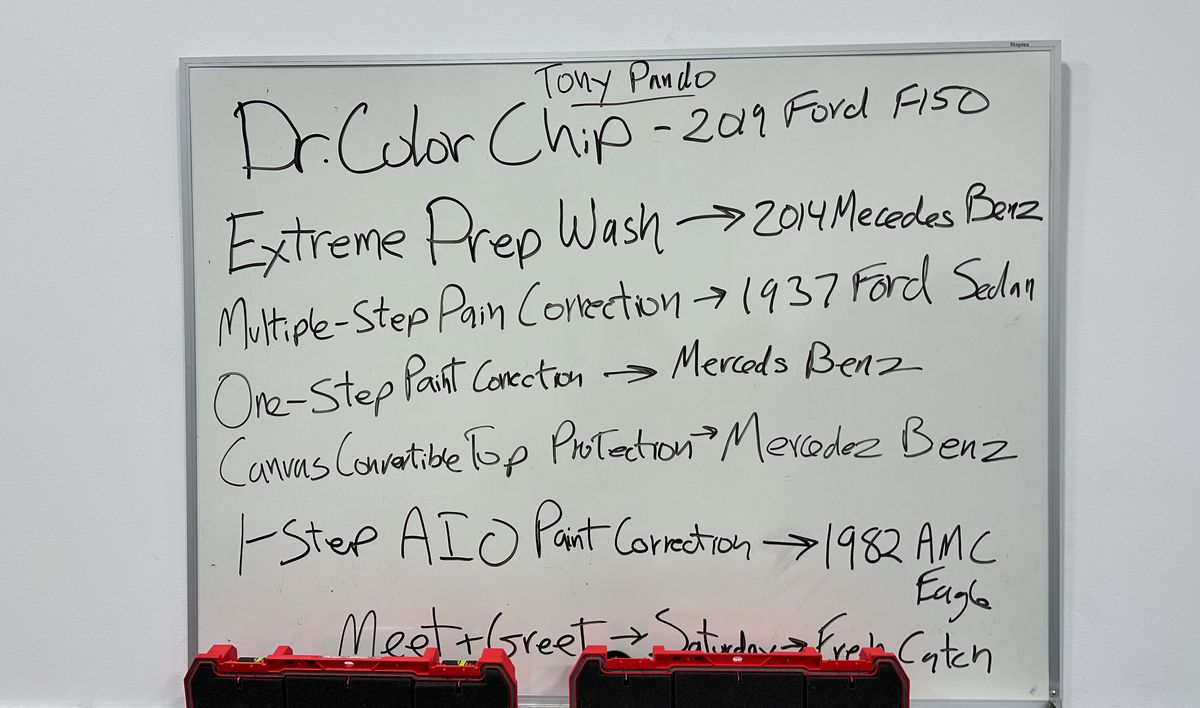 Staples
Tony Pando
Dr. Color Chip - 2019 Ford F150
Extreme Prep Wash → 2014 Mecedes Benz
Multiple-Step Pain Correction → 1937 Ford Sedan
One-Step Paint Correction → Merceds Benz
Canvas Convertible Top Protection → Mercedez Benz
1-Step AIO Paint Correction → 1982 AMC
Eagle
Meet + Greet → Saturday → Fresh Catch